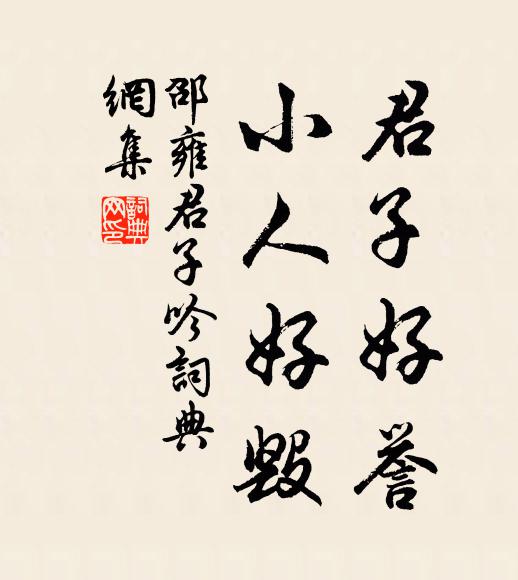 君子好誉
小人好毀
邵雍君子吟詞典
網集
詞典
网印